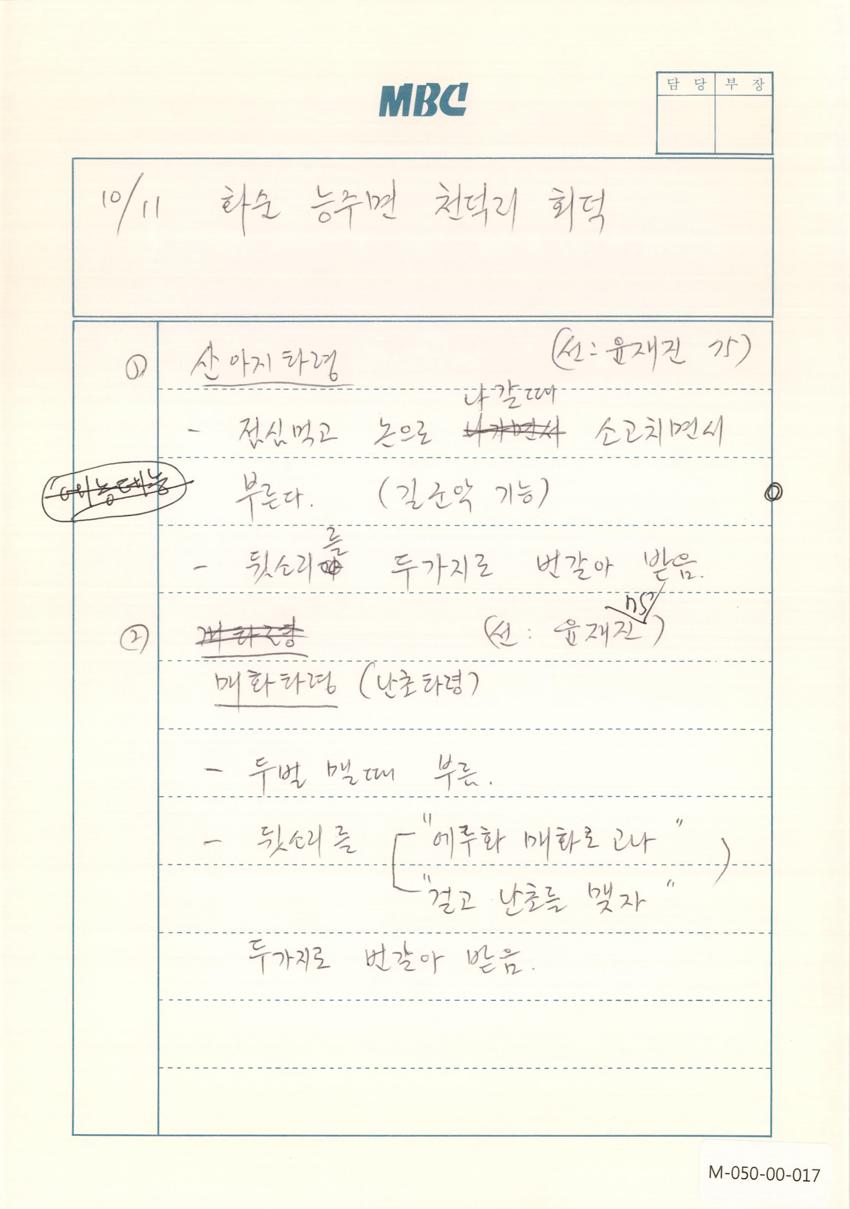 MBC
담 당 부 장
10/11 화순 능주면 천덕리 회덕
① 산아지타령 (선: 윤재진 75)
나갈때
- 점심먹고 논으로 나가면서 소고치면서
에이농데농
부른다. (길군악 기능)
- 뒷소리를 두가지로 번갈아 받음.
75
② (선: 윤재진)
매화타령 (난초타령)
- 두벌 맬때 부름.
- 뒷소리를 "에루화 매화로고나"
"걸고 난초를 맺자"
두가지로 번갈아 받음.
M-050-00-017